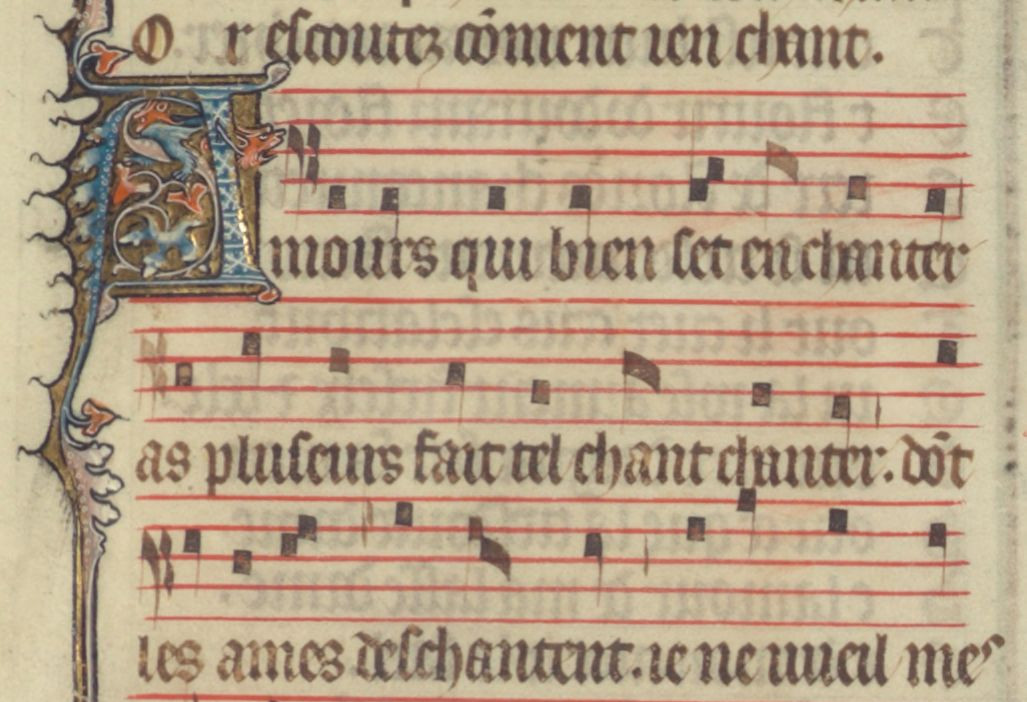 Or escoutez cōment ien chant.
Amours qui bien set en chanter
as pluseurs fait tel chant chanter. dōt
les ames deschantent. ie ne uueil mes